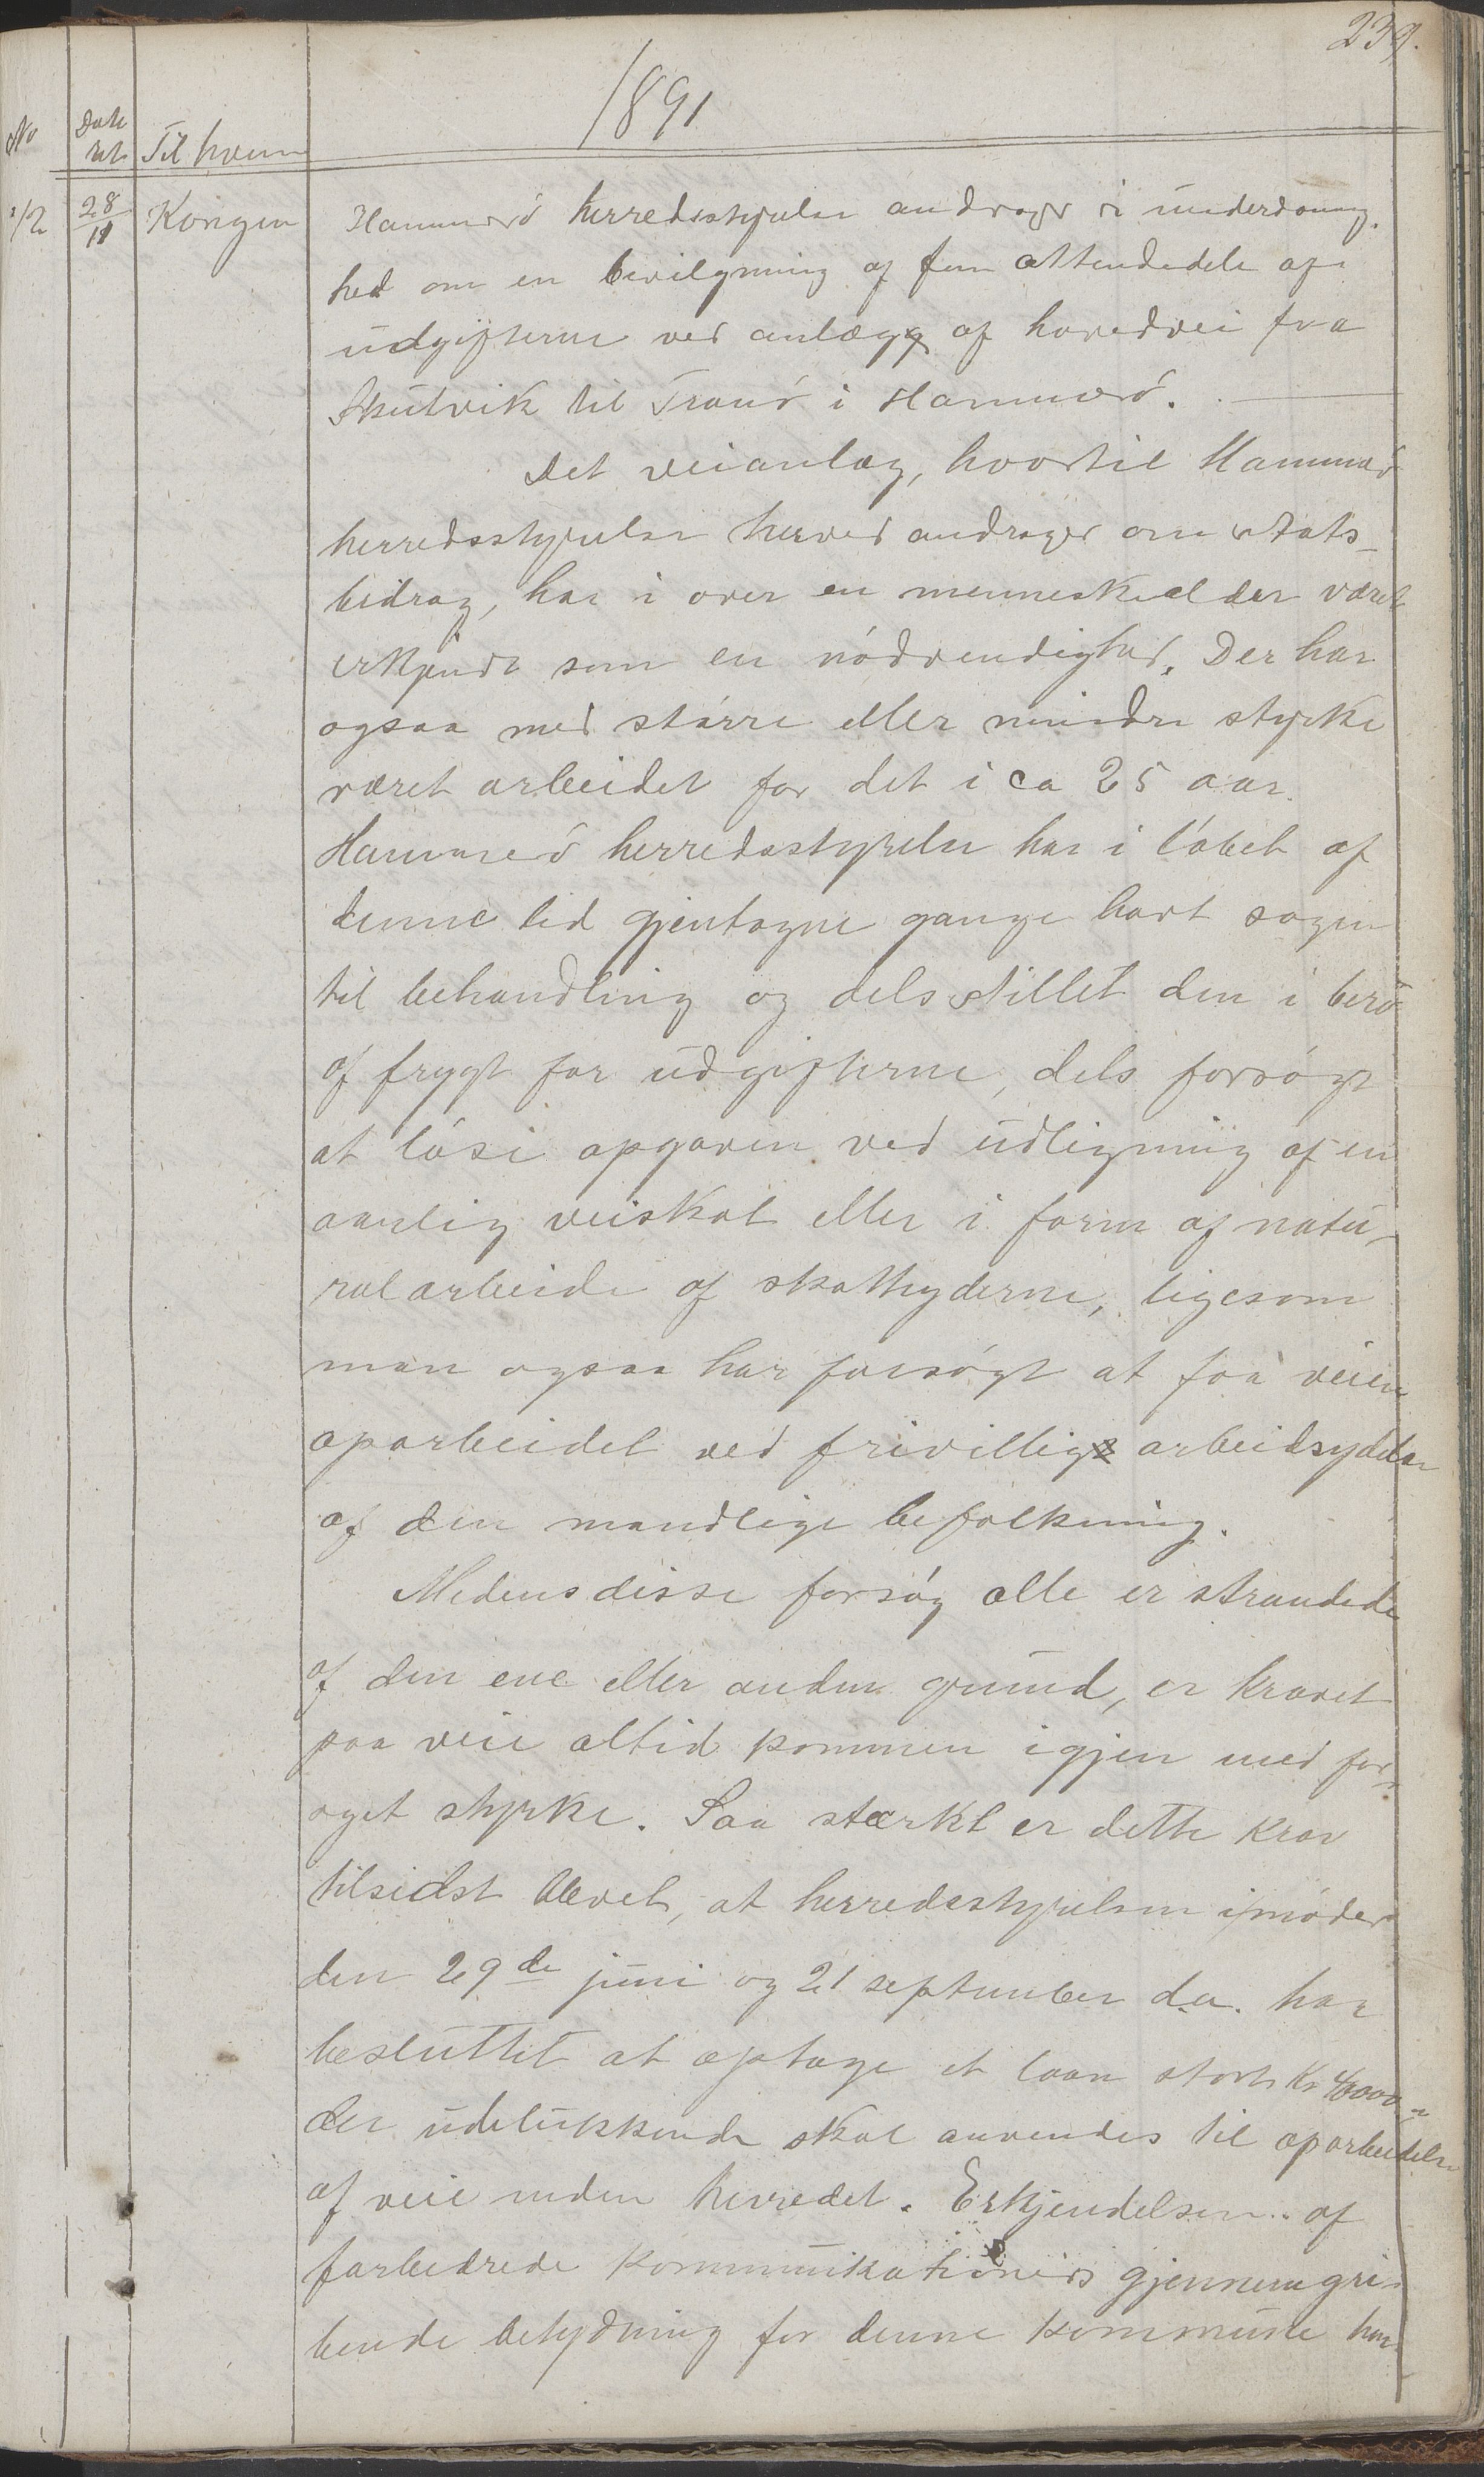 239.
1891
No
Date
ret
Til hvem
28/11
Kongen
Hammerö herredsstyrelse andrager i underdanig-
hed om en bevilgning af fem ottendedele af
udgifterne ved anlæg af hovedvei fra
Skutvik til Tranö i Hammerö.
Det veianlæg, hvortil Hammerö
herredsstyrelse herved andrager om stats-
bidrag, har i over en menneskealder været
erkjendt som en nödvendighed. Der har
ogsaa med större eller mindre styrke
været arbeidet for det i ca 25 aar.
Hammerö herredsstyrelse har i löbet af
denne tid gjentagne gange havt sagen
til behandling og dels stillet den i berö
af frygt for udgifterne, dels forsögt
at löse opgaven ved udligning af en
aarlig veiskat eller i form af natu-
ralarbeide af skatteyderne, ligesom
man ogsaa har forsögt at faa veien
oparbeidet ved frivillig arbeidsydelse
af den mandlige befolkning.
Medens disse forsög alle er strandede
af den ene eller anden grund, er kravet
paa veie altid kommen igjen med for-
öget styrke. Saa stærkt er dette krav
tilsidst blevet, at herredsstyrelsen i möder
den 29de juni og 21 september d.a. har
besluttet at optage et laan stort Kr 40000,-
der udelukkende skal anvendes til oparbeidelse
af veie inden herredet. Erkjendelsen af
forbedrede kommunikationers gjennemgri-
bende betydning for denne kommune har